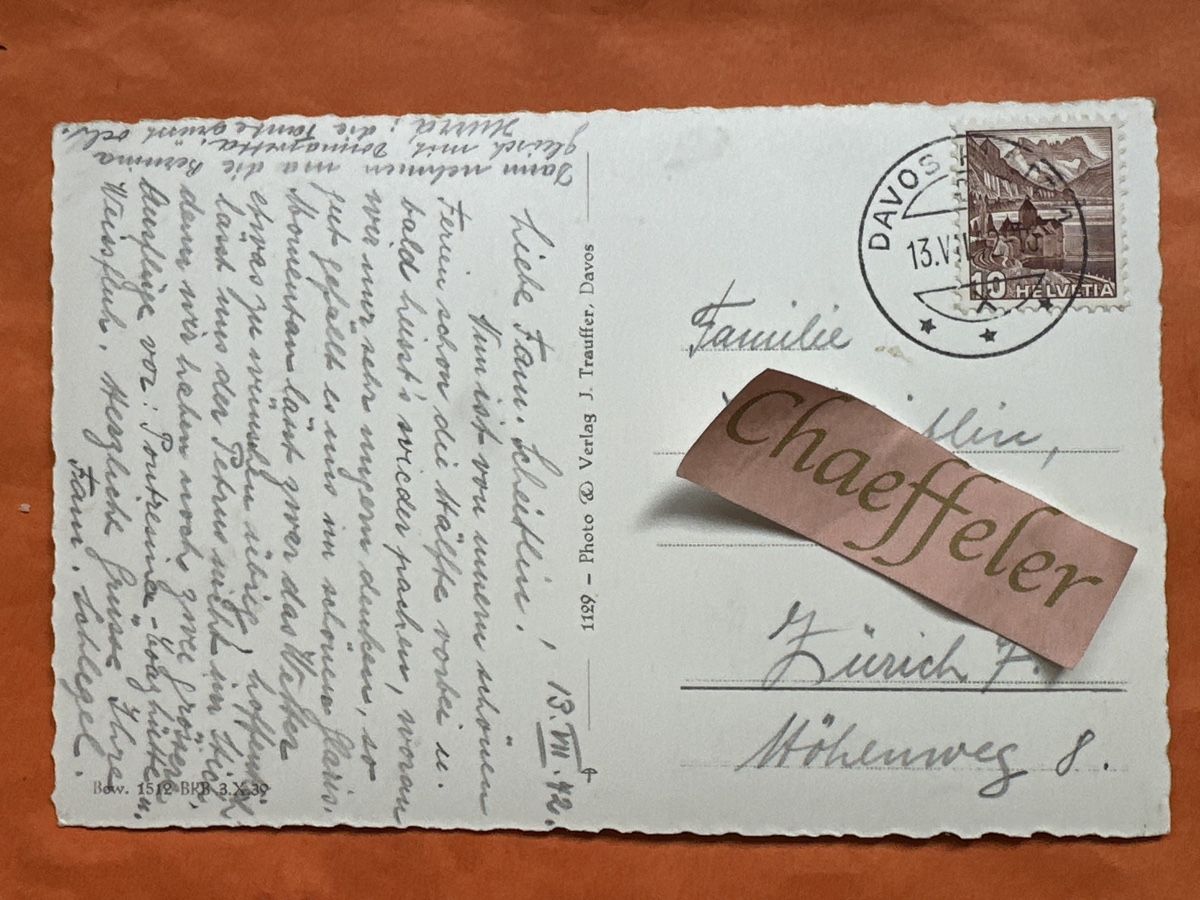 13. VII. 42.
Liebe Fam. Scheitlin!
Nun ist von unsern schönen
Ferien schon die Hälfte vorbei u.
bald heisst's wieder packen, woran
wir nur sehr ungern denken, so
gut gefällt es uns im schönen Glaris.
Momentan lässt zwar das Wetter
etwas zu wünschen übrig, hoffentlich
lässt uns der Petrus nicht im Stich,
denn wir haben noch zwei grössere
Ausflüge vor: Pontresina - u.
Weissfluh. Herzliche Grüsse Ihre
Fam. Schlegel.
Dann nehmen ma die Bernina
gleich mit
Hurra! die Tante grüsst och.
1129 – Photo & Verlag J. Trauffer, Davos
Bew. 1512 BRB 3.X.39
DAVOS
13.VII
10 HELVETIA
Familie
tlin,
Chaeffeler
Zürich 7.
Höhenweg 8.